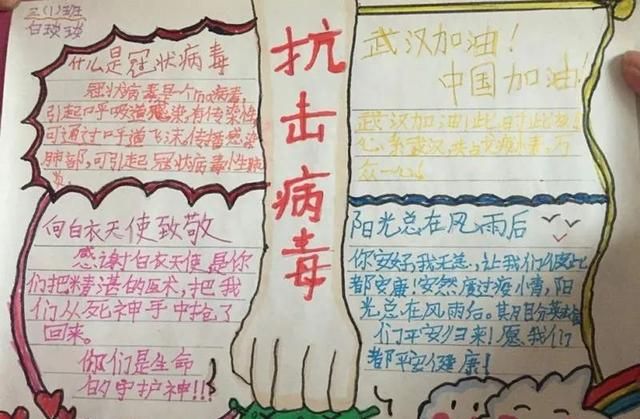 三(1)班
白琰琰
抗击病毒
什么是冠状病毒
冠状病毒是一个rna病毒,
引起呼吸道感染有传染性
可通过呼道飞沫传播感染
肺部,可引起冠状病毒性肺
炎
武汉加油!
中国加油!
武汉加油!此
心,系武汉,共占疫情,万
众一心
向白衣天使致敬
感谢白衣天使,是你
们把精湛的医术,把我
们从死神手中抢了
回来。
你们是生命
的守护神!!!
阳光总在风雨后
你安好,我无恙,让我们彼此
都安康!安然度过疫情,阳
光总在风雨后。其月自分英雄
们平安归来!愿我们
都平安健康!